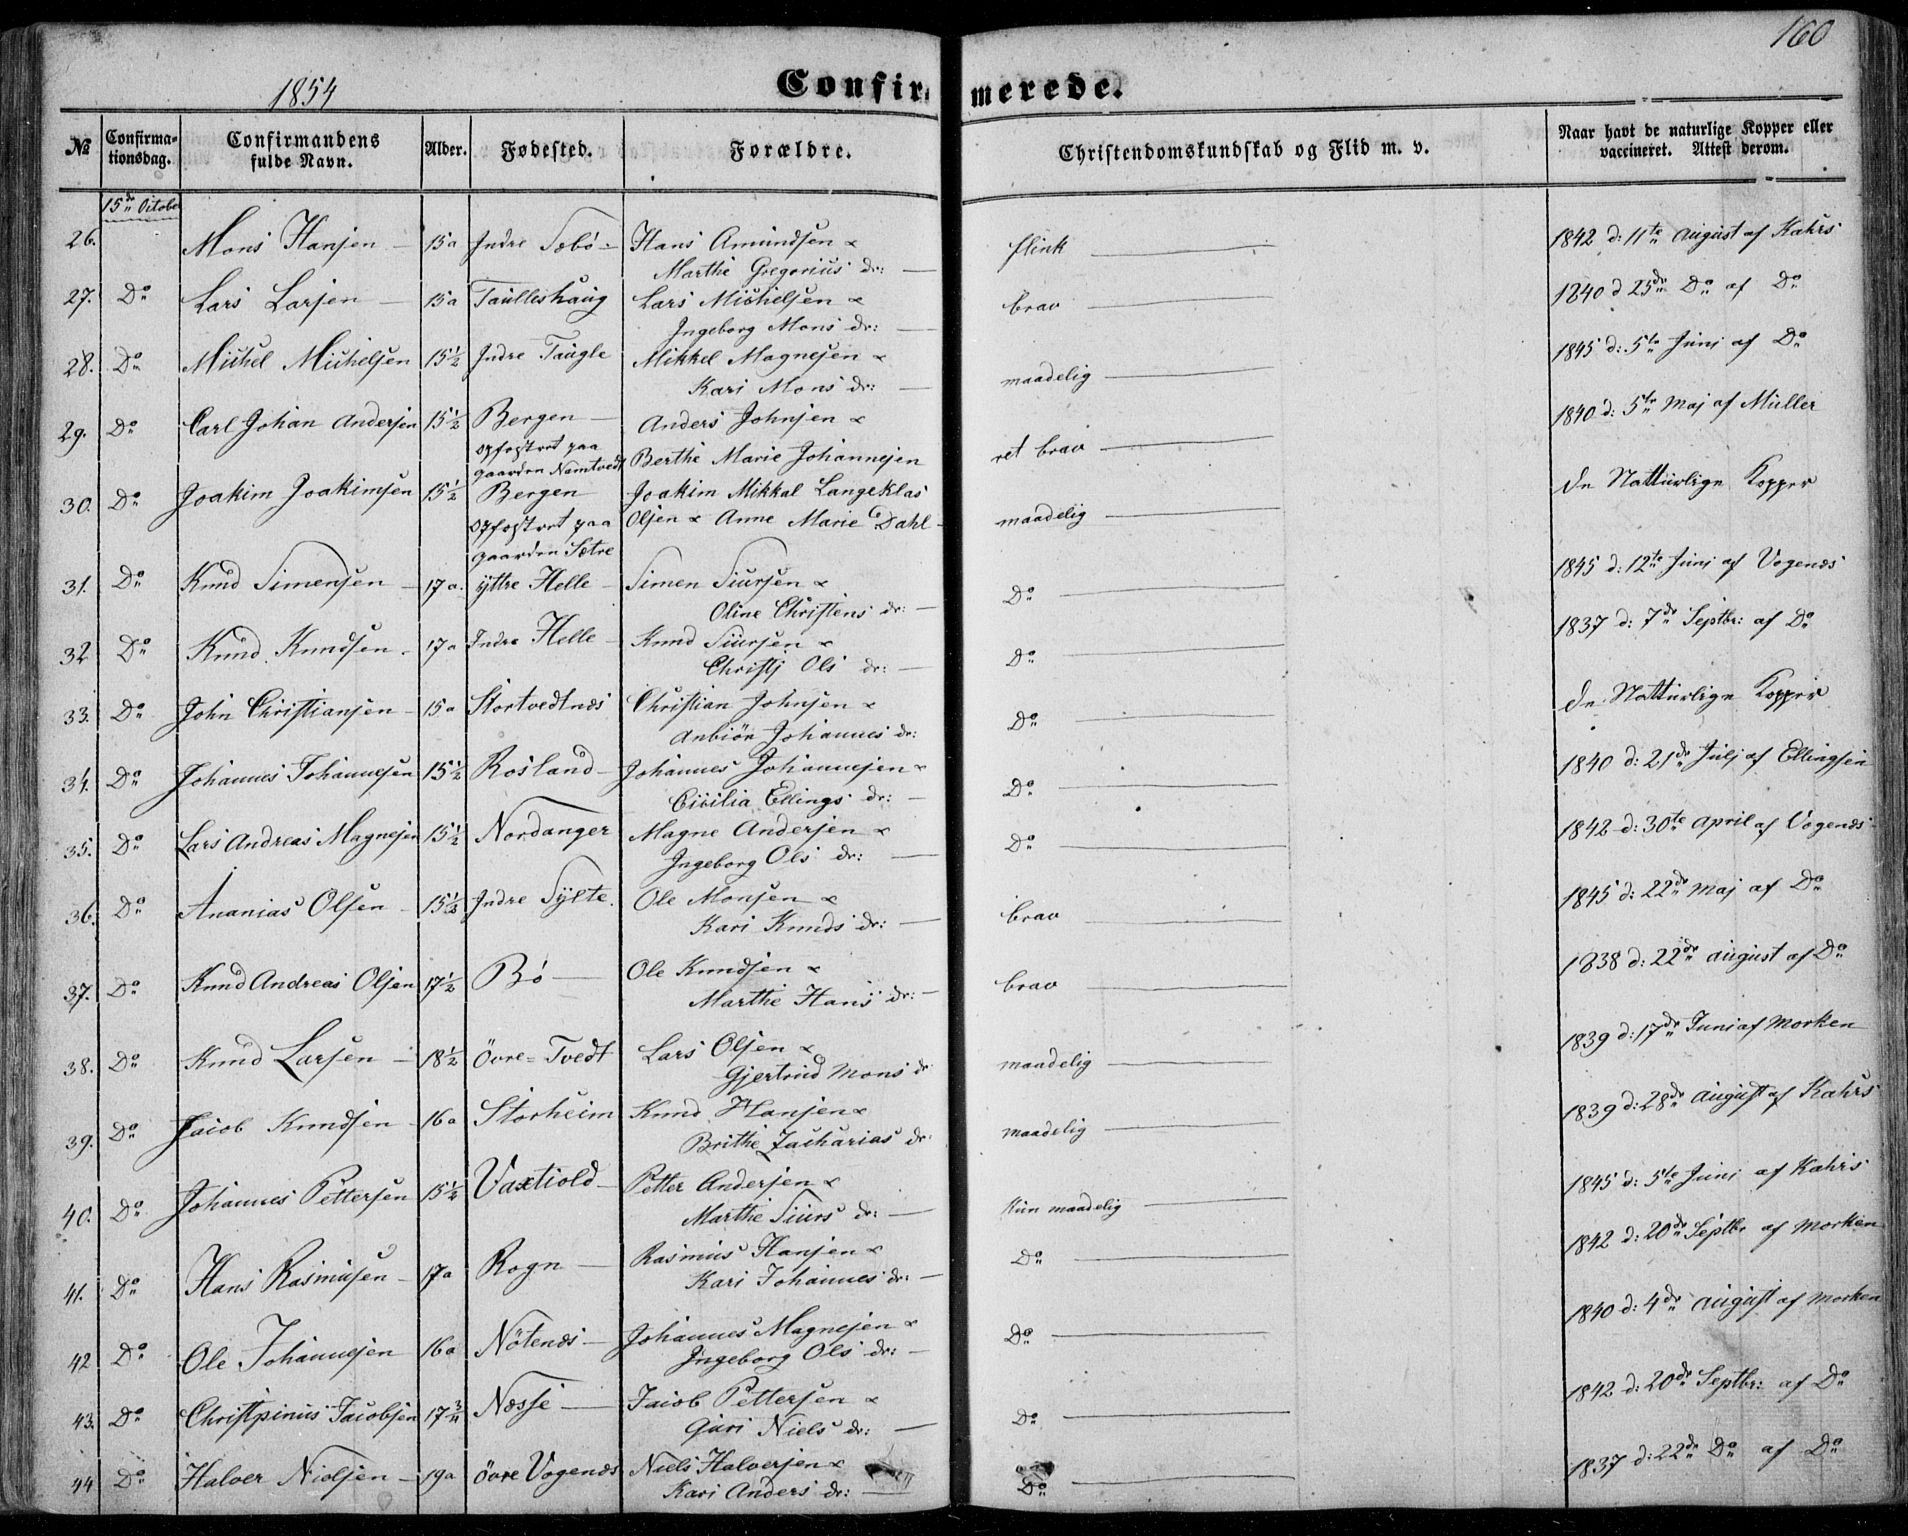 160
1854
Confirmerede.
No Confirmationsdag. Confirmandens fulde Navn. Alder. Fødested. Forældre. Christendomskundskab og Flid m. v. Naar havt de naturlige Kopper eller vaccineret. Attest derom.
15de October
26. Mons Hansen 15a Indre Sæbö Hans Amundsen & flink 1842 d: 11te August af Kahrs
Marthe Gregorius dr:
27. Do Lars Larsen 15a Taulleshaug Lars Michelsen & brav 1840 d 25de Do af Do
Ingeborg Mons dr:
28. Do Michel Michelsen 15½ Indre Taugle Mikkel Magnesen & maadelig 1845 d: 5te Juni af Do
Kari Mons dr:
29. Do Carl Johan Andersen 15½ Bergen Anders Johnsen & ret brav 1840 d: 5te Maj af Müller
opfostret paa
gaarden Namtvedt Berthe Marie Johannesen
30. Do Joakim Joakimsen 15½ Bergen Joakim Mikkal Langeklas maadelig de Natturlige Kopper
opfostret paa Olsen & Anne Marie C. Dahl
gaarden Sætre
31. Do Knud Simensen 17a. yttre Helle Simen Siursen & Do 1845 d: 12te Juni af Vogenæs
Oline Christens dr:
32 Do Knud Knudsen 17a Indre Helle Knud Siursen & Do 1837 d: 7de Septbr: af Do
Christj Ols dr:
33. Do John Christiansen 15a Stortvedtnæs Christian Johnsen & Do de Natturlige Kopper
Anbiör Johannes dr:
34. Do Johannes Johannesen 15½ Rosland Johannes Johannesen & Do 1840 d: 21de Julj af Ellingsen
Cicilia Ellings dr:
35. Do Lars Andreas Magnesen 15½ Nordanger Magne Andersen & Do 1842 d: 30te April af Vogenæs
Ingeborg Ols dr:
36. Do Ananias Olsen 15½ Indre Sylte Ole Monsen & brav 1845 d: 22de Maj af Do
Kari Knuds dr:
37. Do Knud Andreas Olsen 17½ Bö Ole Knudsen & brav 1838 d: 22de August af Do
Marthe Hans dr:
38. Do Knud Larsen 18½ Övre-Tvedt Lars Olsen & maadelig 1839 d: 17de Juni af Morken
Gjertrud Mons dr
39. Do Jacob Knudsen 16a Storheim Knud Hansen & maadelig 1839 d: 28de August af Kahrs
Brithe Zacharias dr:
40. Do Johannes Pettersen 15½ Vaxtiold Petter Andersen & Kun maadelig 1845 d: 5te Juni af Kahrs
Marthe Siurs dr:
41. Do Hans Rasmusen 17a Rogn Rasmus Hansen & Do 1842 d: 20de Septbr af Morken
Kari Johannes dr:
42 Do Ole Johannesen 16a Nötenæs Johannes Magnesen & Do 1840 d: 4de August af Morken
Ingeborg Ols dr:
43. Do Christpinus Jacobsen 17¾ Næsse Jacob Pettersen & Do 1842 d: 20de Septbr: af Do
Guri Niels dr:
44 Do Halver Nielsen 19a övre Vogenæs Niels Halversen & Do 1837 d: 22de Do af Do
Kari Anders dr: